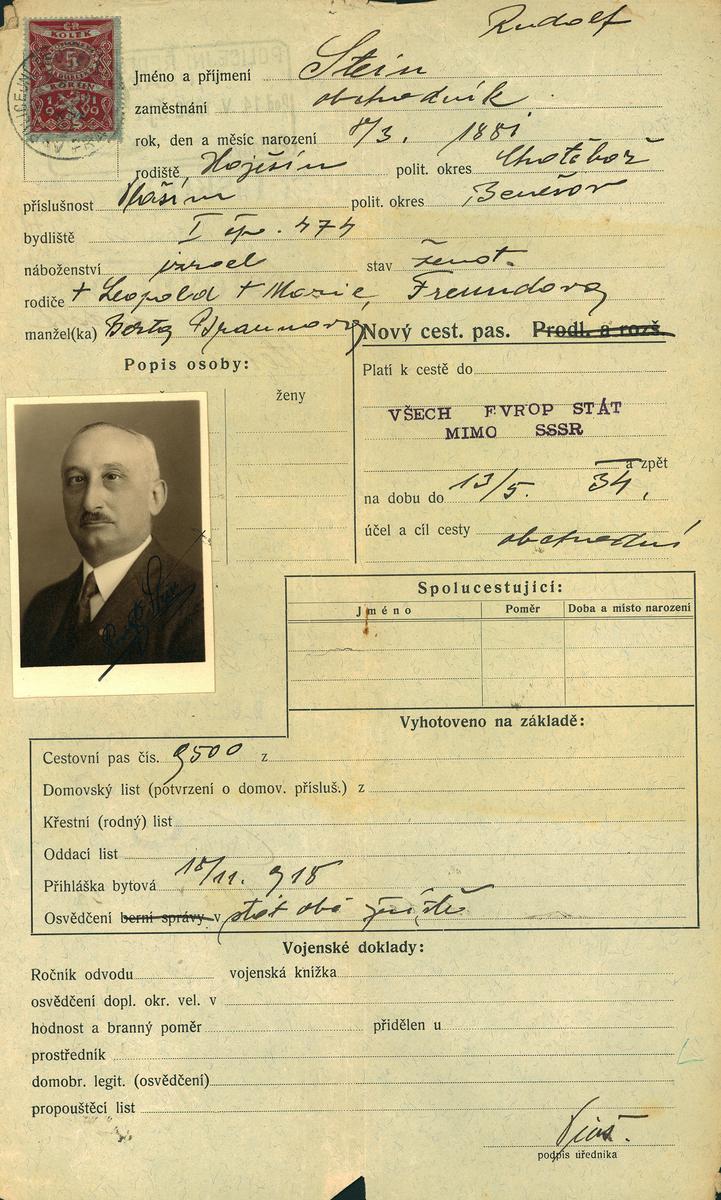 Rudolf
ČR
KOLEK
5
KORUN
1919
Jméno a příjmení Stein
zaměstnání obchodník.
rok, den a měsíc narození 8/3. 1881
rodiště Hoješín polit. okres Chotěboř
příslušnost Vlašim polit. okres Benešov
bydliště I čp. 474
náboženství izrael stav ženat.
rodiče + Leopold + Marie, Freundova
manžel(ka) Berta Braunová
Nový cest. pas. Prodl. a rozš.
Popis osoby:
ženy
Platí k cestě do
VŠECH EVROP STÁT
MIMO SSSR
a zpět
na dobu do 13/5. 34,
účel a cíl cesty obchodní
Spolucestující:
Jméno Poměr Doba a místo narození
Vyhotoveno na základě:
Cestovní pas čís. 9500 z
Domovský list (potvrzení o domov. přísluš.) z
Křestní (rodný) list
Oddací list
Přihláška bytová 18/11. 918
Osvědčení berní správy v stát obč
Vojenské doklady:
Ročník odvodu vojenská knížka
osvědčení dopl. okr. vel. v
hodnost a branný poměr přidělen u
prostředník
domobr. legit. (osvědčení)
propouštěcí list
podpis úředníka